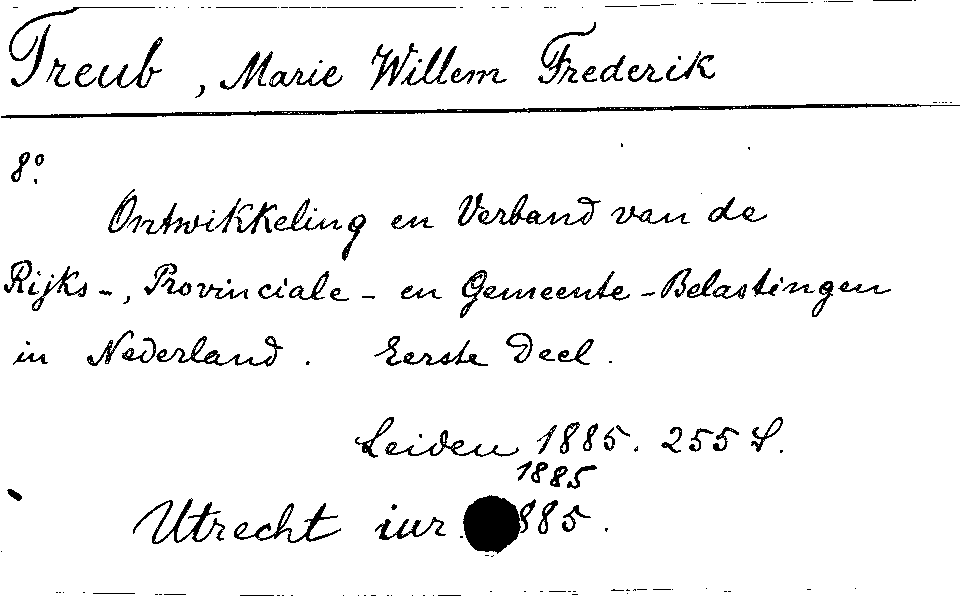 Treub, Marie Willem Frederik
8°.
Ontwikkeling en Verband van de
Rijks-, Provinciale- en Gemeente-Belastingen
in Nederland. Eerste Deel.
Leiden 1885. 255 S.
1885
Utrecht iur. 885.